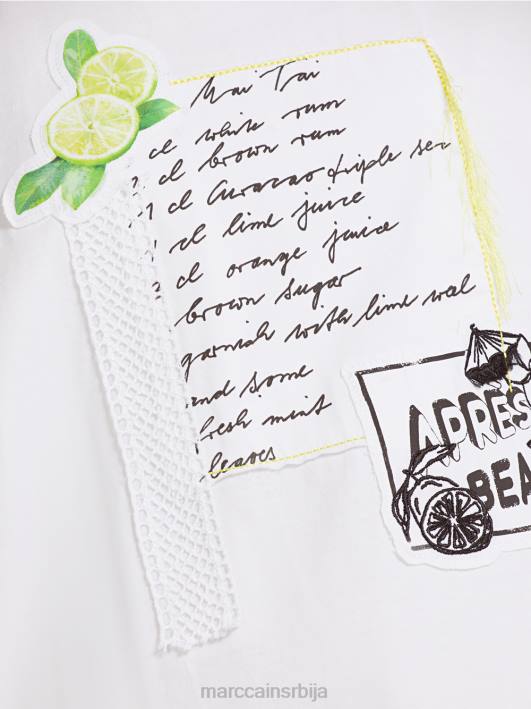 Mai Tai
cl white rum
cl brown rum
1 cl Curacao triple sec
cl lime juice
cl orange juice
brown sugar
garnish with lime
and some
fresh mint
leaves
APRÈS
BEA
marccainsrbija